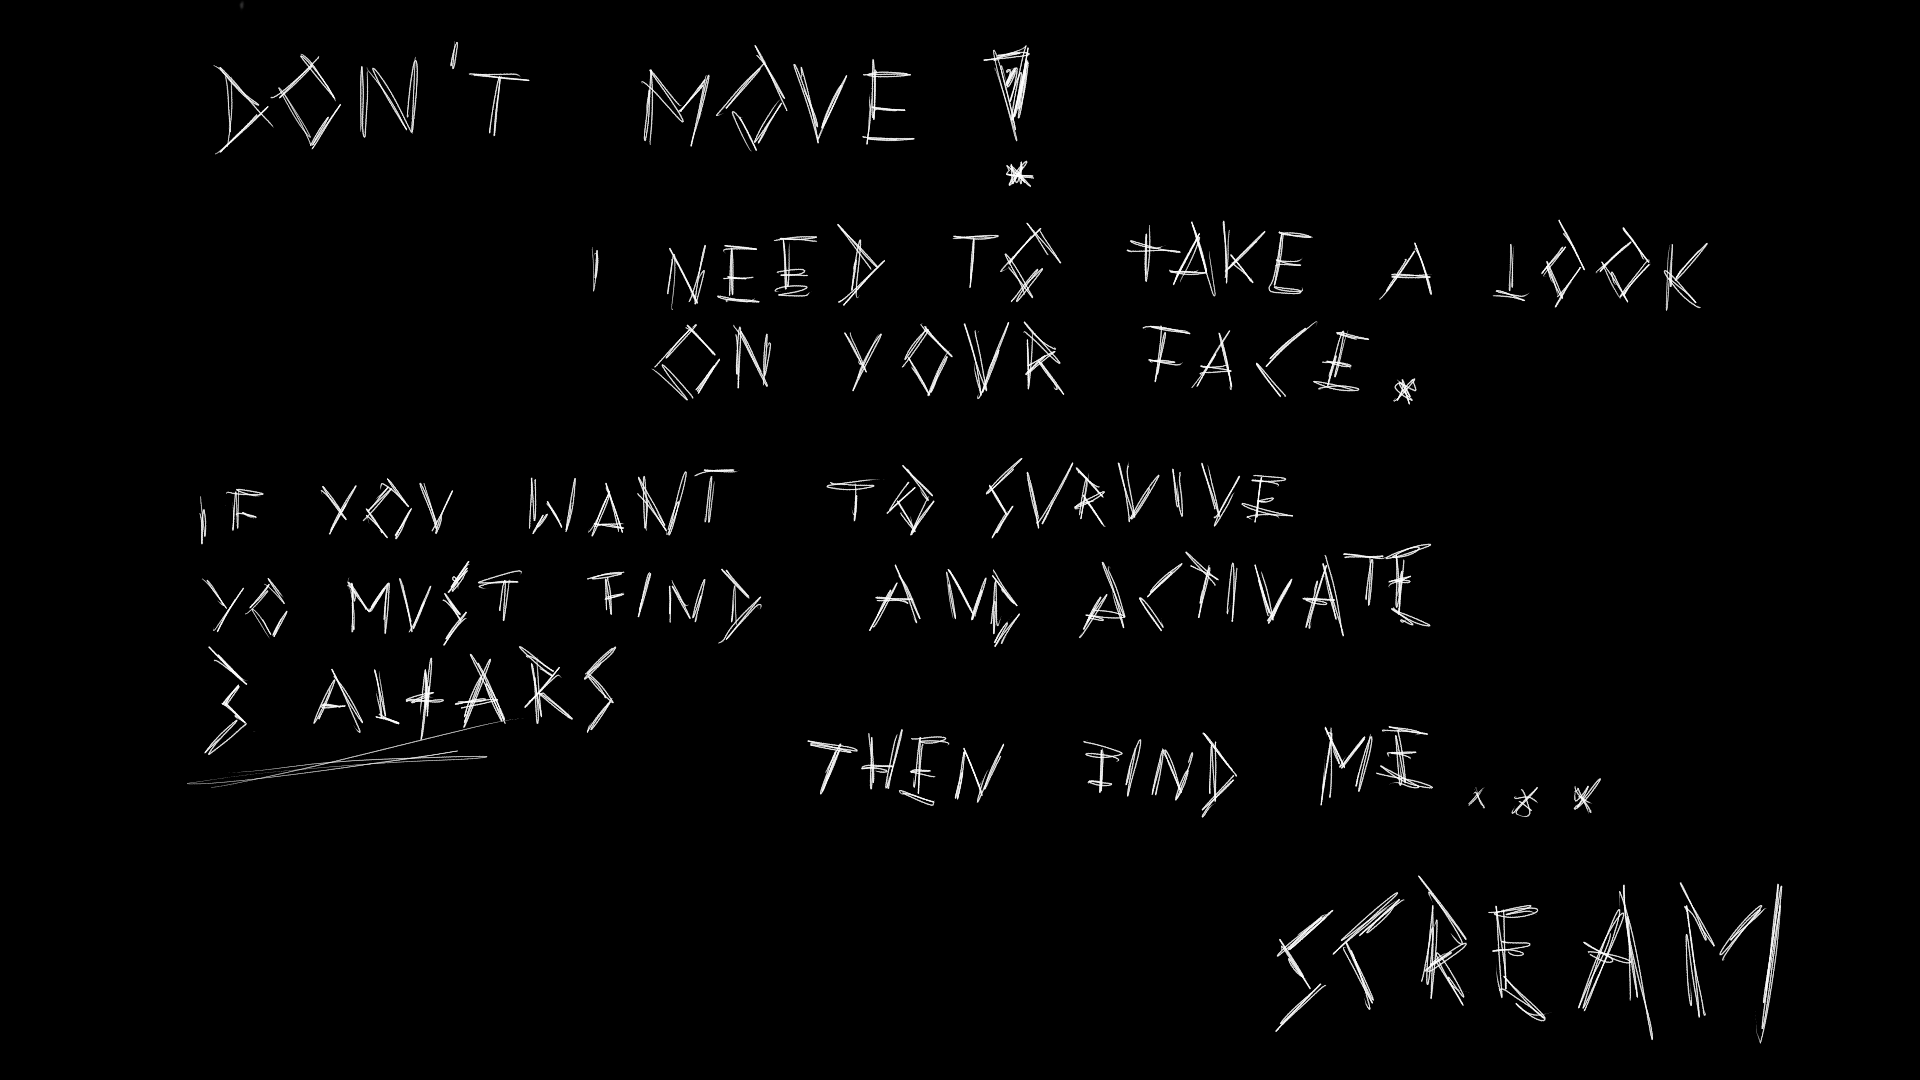 DON'T MOVE!
I NEED TO TAKE A LOOK
ON YOUR FACE.
IF YOU WANT TO SURVIVE
YO MUST FIND AND ACTIVATE
3 ALTARS
THEN FIND ME...
SCREAM